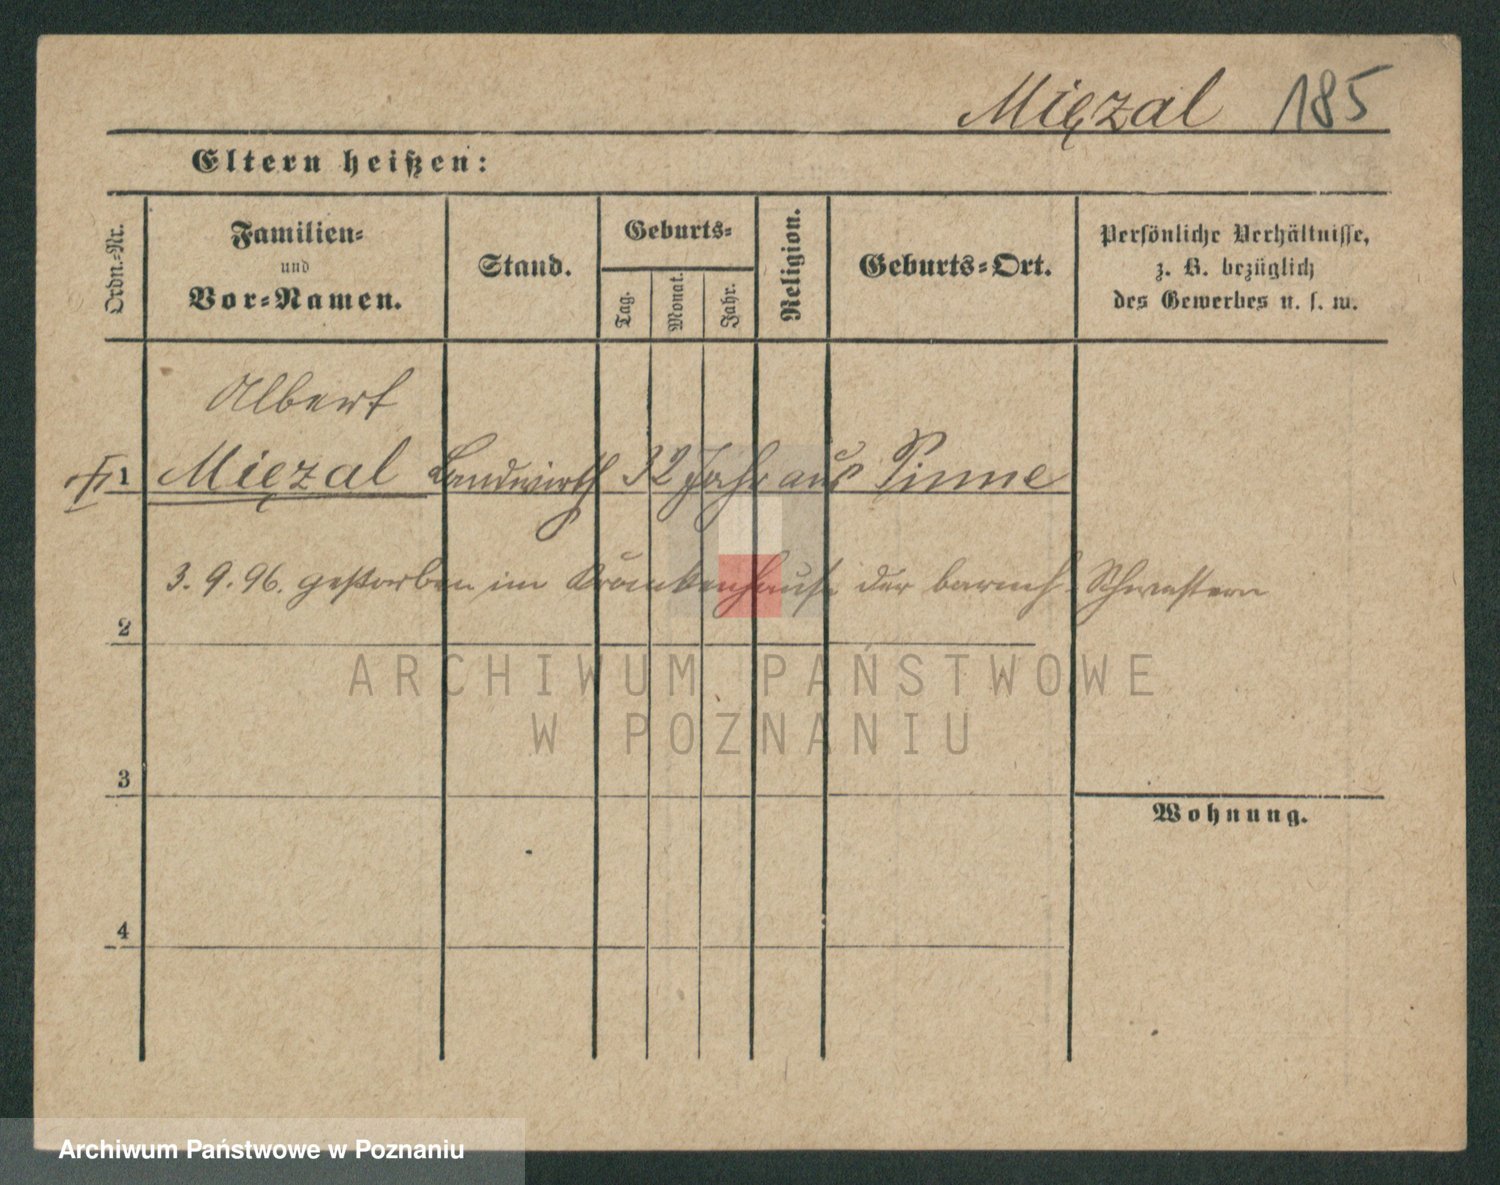 Mięzal 185
Eltern heißen:
Ordn.-Nr.
Familien-
und
Vor-Namen.
Stand.
Geburts-
Tag.
Monat.
Jahr.
Religion.
Geburts-Ort.
Persönliche Verhältnisse,
z. B. bezüglich
des Gewerbes u. s. w.
Albert
1 Mięzal Landwirth 32 Jahr aus Pinne
3. 9. 96. gestorben im Krankenhause der barmh. Schwestern
2
ARCHIWUM PAŃSTWOWE
W POZNANIU
3
Wohnung.
4
Archiwum Państwowe w Poznaniu